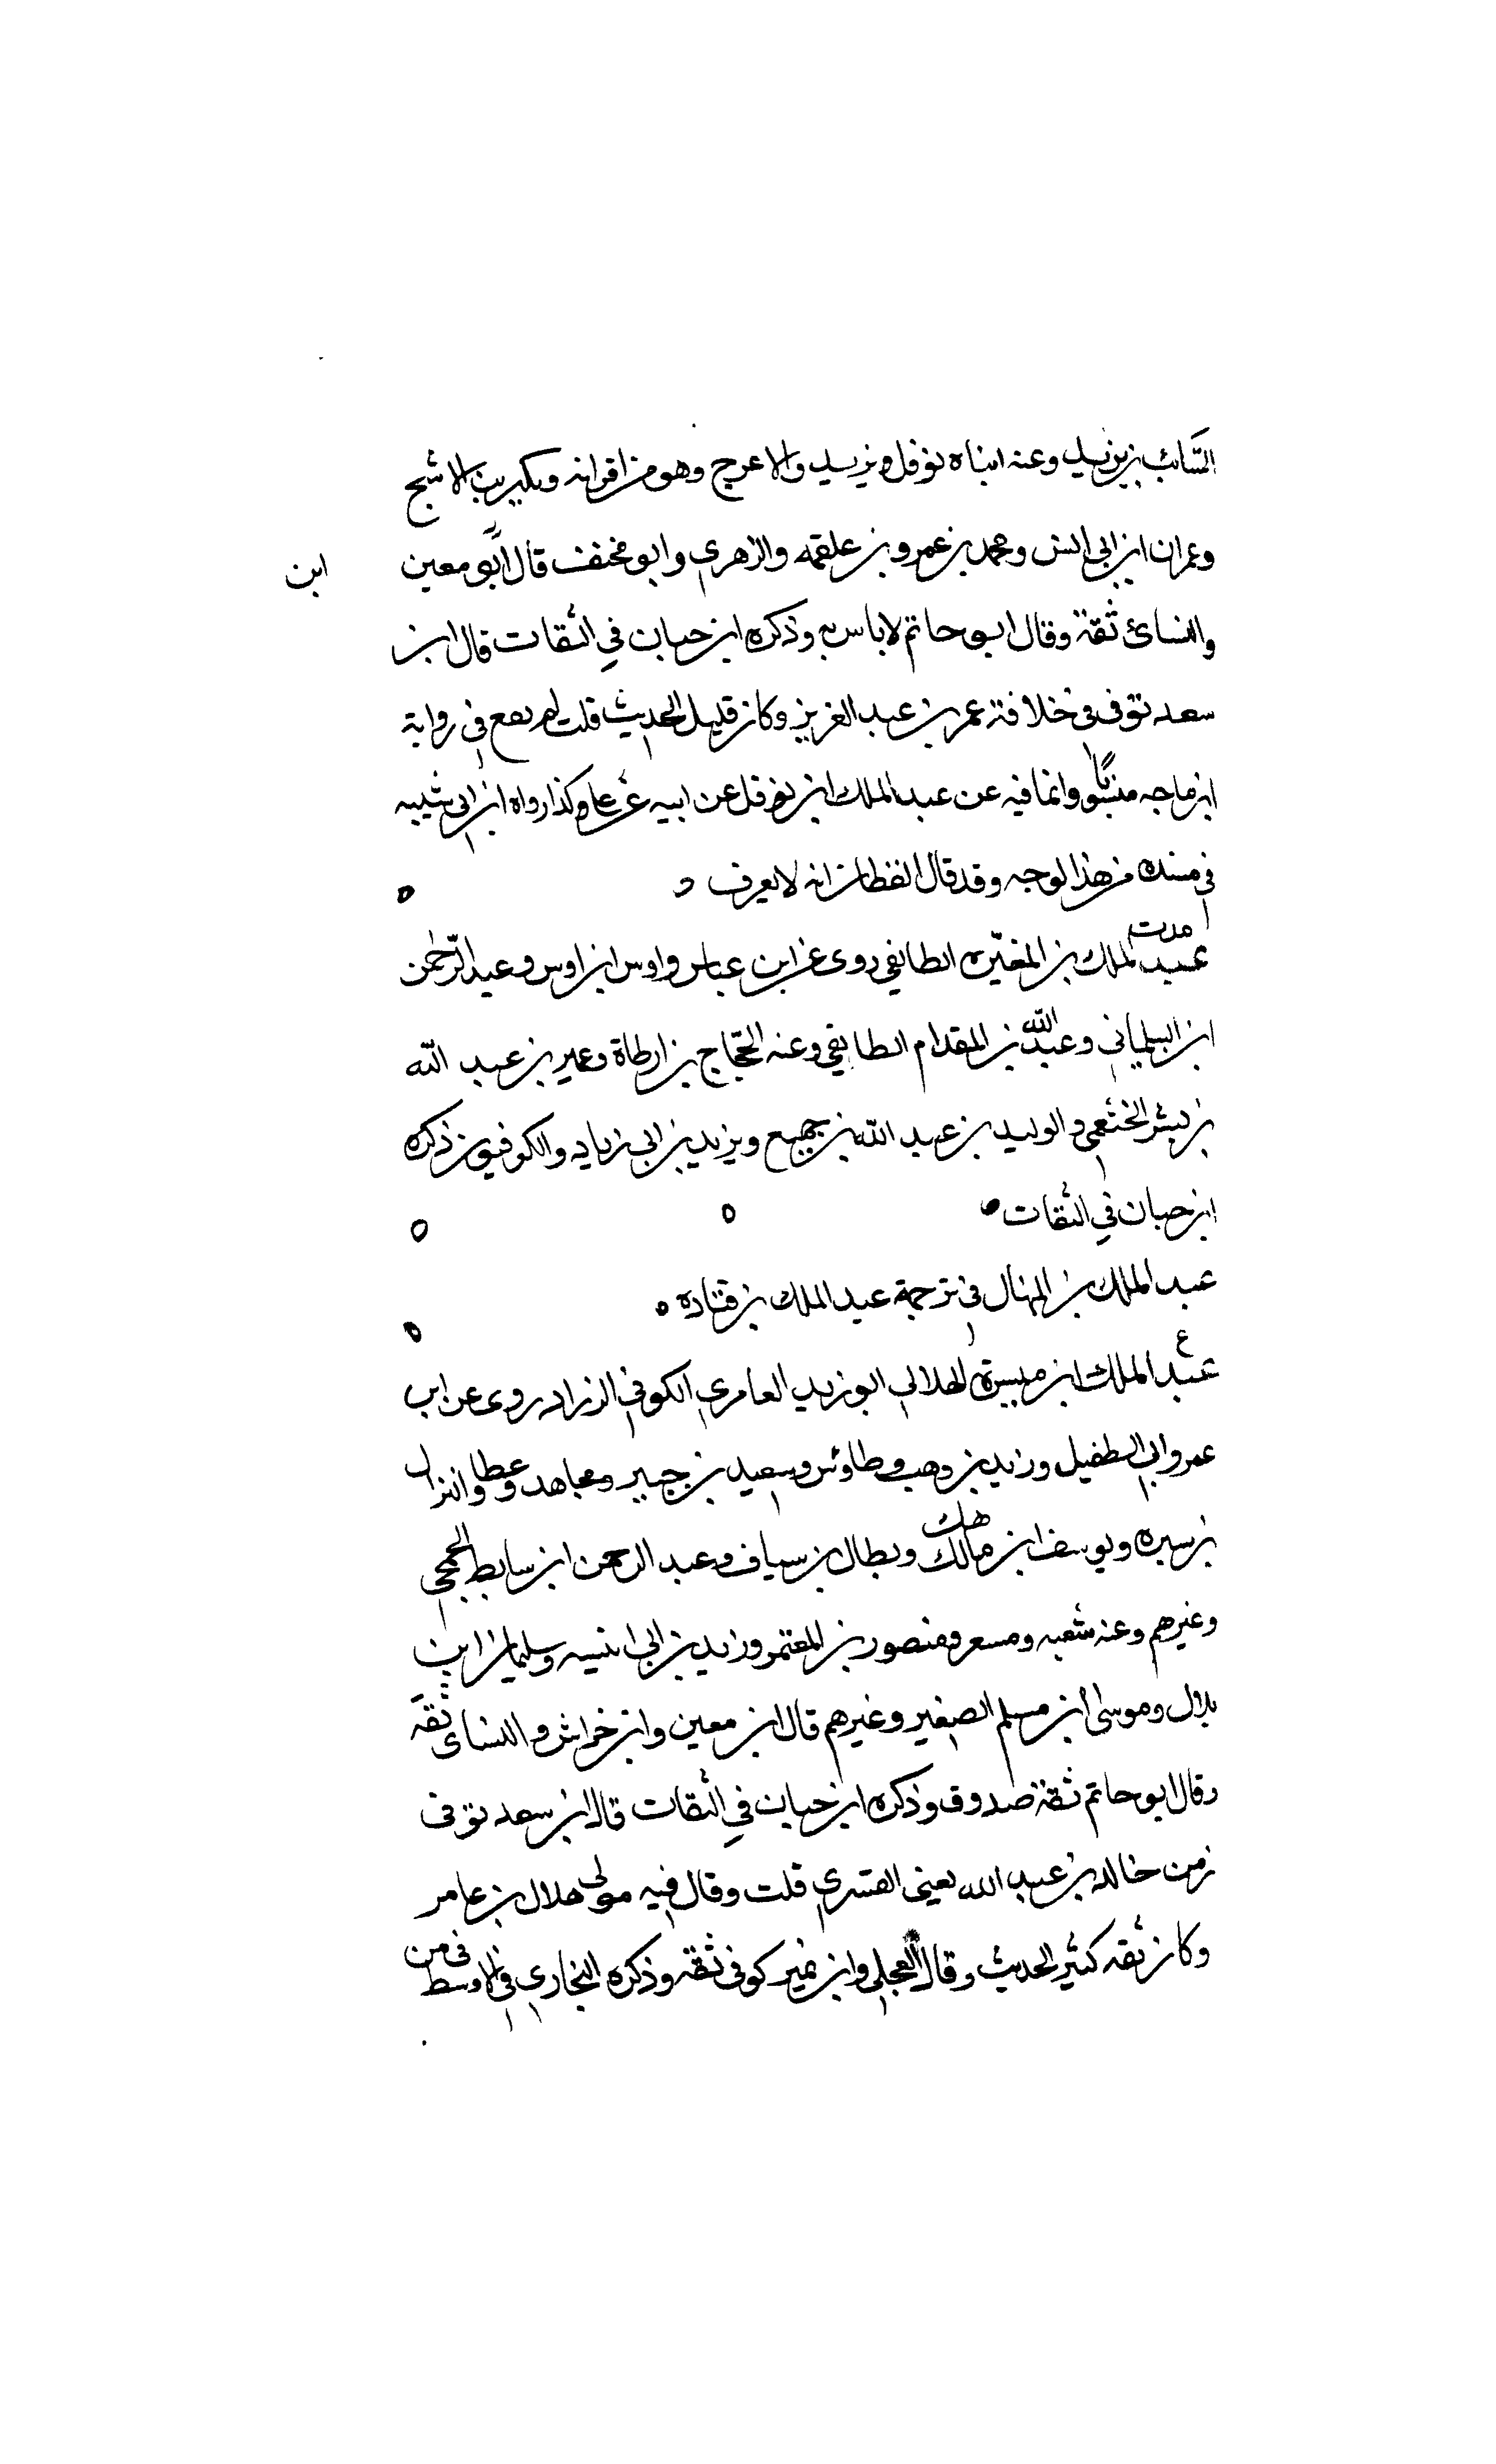 السائب بن يزيد وعنه ابناه نوفل ويزيد والاعرج وهو من اقرانه وبكير بن الاشج
وعمران ابن ابي انس ومحمد بن عمرو بن علقمه والزهري وابو مخنف قال ابو معين
ابن
والنسائ ثقة وقال ابو حاتم لاباس به وذكره ابن حبان في الثقات قال ابن
سعد توفى في خلافة عمر بن عبد العزيز وكان قليل الحديث قلت لم يقع في رواية
ابن ماجه منسوبا وانما فيه عن عبد الملك ابن نوفل عن ابيه عن عاصم كذا رواه ابن ابي شيبه
في مسنده من هذا الوجه وقد قال القطان انه لا يعرف
مدت
عبد الملك بن المغيره الطايفي روى عن ابن عباس واوس ابن اوس وعبد الرحمن
ابن البيلماني وعبد الله بن المقدام الطايفي وعنه الحجاج بن ارطاة وعمير بن عبد الله
بن بشر الخثعمي والوليد بن عبد الله بن جميع ويزيد بن ابي زياد والكوفيون ذكره
ابن حبان في الثقات
عبد الملك بن المنهال في ترجمة عبد الملك بن قتاده
ع
عبد الملك ابن ميسرة الهلالي ابو زيد العامري الكوفي الزراد روى عن ابن
عمر وابي الطفيل وزيد بن وهب وطاوس وسعيد بن جبير ومجاهد وعطا والنزال
بن سبره ويوسف ابن مالك هك وبطال بن سياف وعبد الرحمن ابن سابط الجمحي
وغيرهم وعنه شعبه ومسعر ومنصور بن المعتمر وزيد بن ابي انيسه وسليمان ابن
بلال وموسى ابن مسلم الصغير وغيرهم قال ابن معين وابن خراش والنسائ ثقة
وقال ابو حاتم ثقة صدوق وذكره ابن حبان في الثقات قال ابن سعد توفى
زمن خالد بن عبد الله يعني القسري قلت وقال فيه مولى هلال بن عامر
وكان ثقه كثير الحديث وقال العجلي وابن نمير كوفى ثقة وذكره البخاري في الاوسط فى من